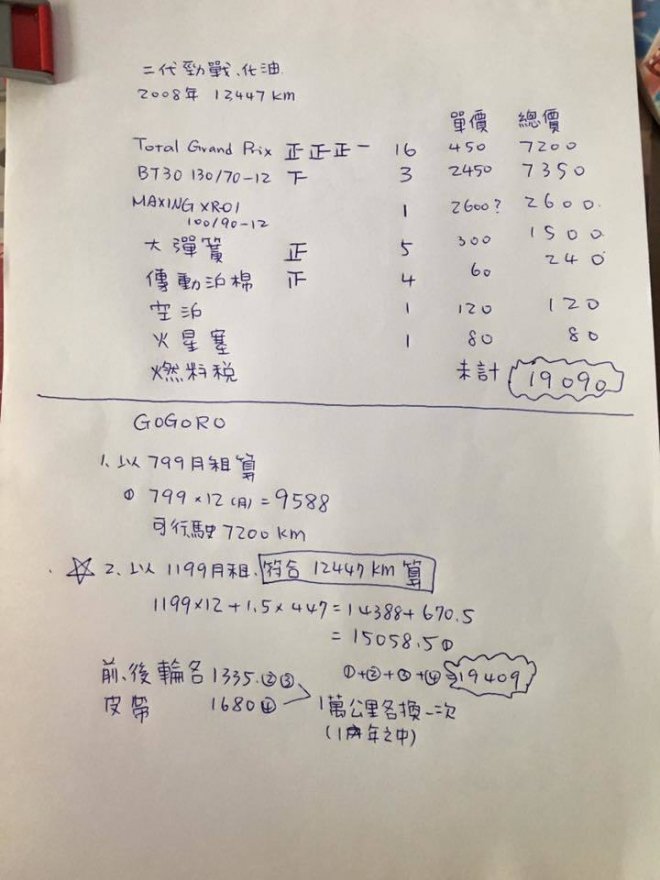 二代勁戰、化油
2008年 12447 km
單價 總價
Total Grand Prix 正正正一 16 450 7200
BT30 130/70-12 下 3 2450 7350
MAXING XR01 1 2600? 2600.
100/90-12
大彈簧 正 5 300 1500
傳動泊棉 正 4 60 240
空泊 1 120 120
火星塞 1 80 80
燃料稅 未計 19090
GOGORO
1、以799月租算
① 799×12(月)=9588
可行駛7200km
☆ 2、以1199月租、符合12447km算
1199×12+1.5×447=14388+670.5
=15058.5①
前、後輪各1335.②③ ①+②+③+④⇒19409
皮帶 1680④ 1萬公里各換一次
(1年之中)